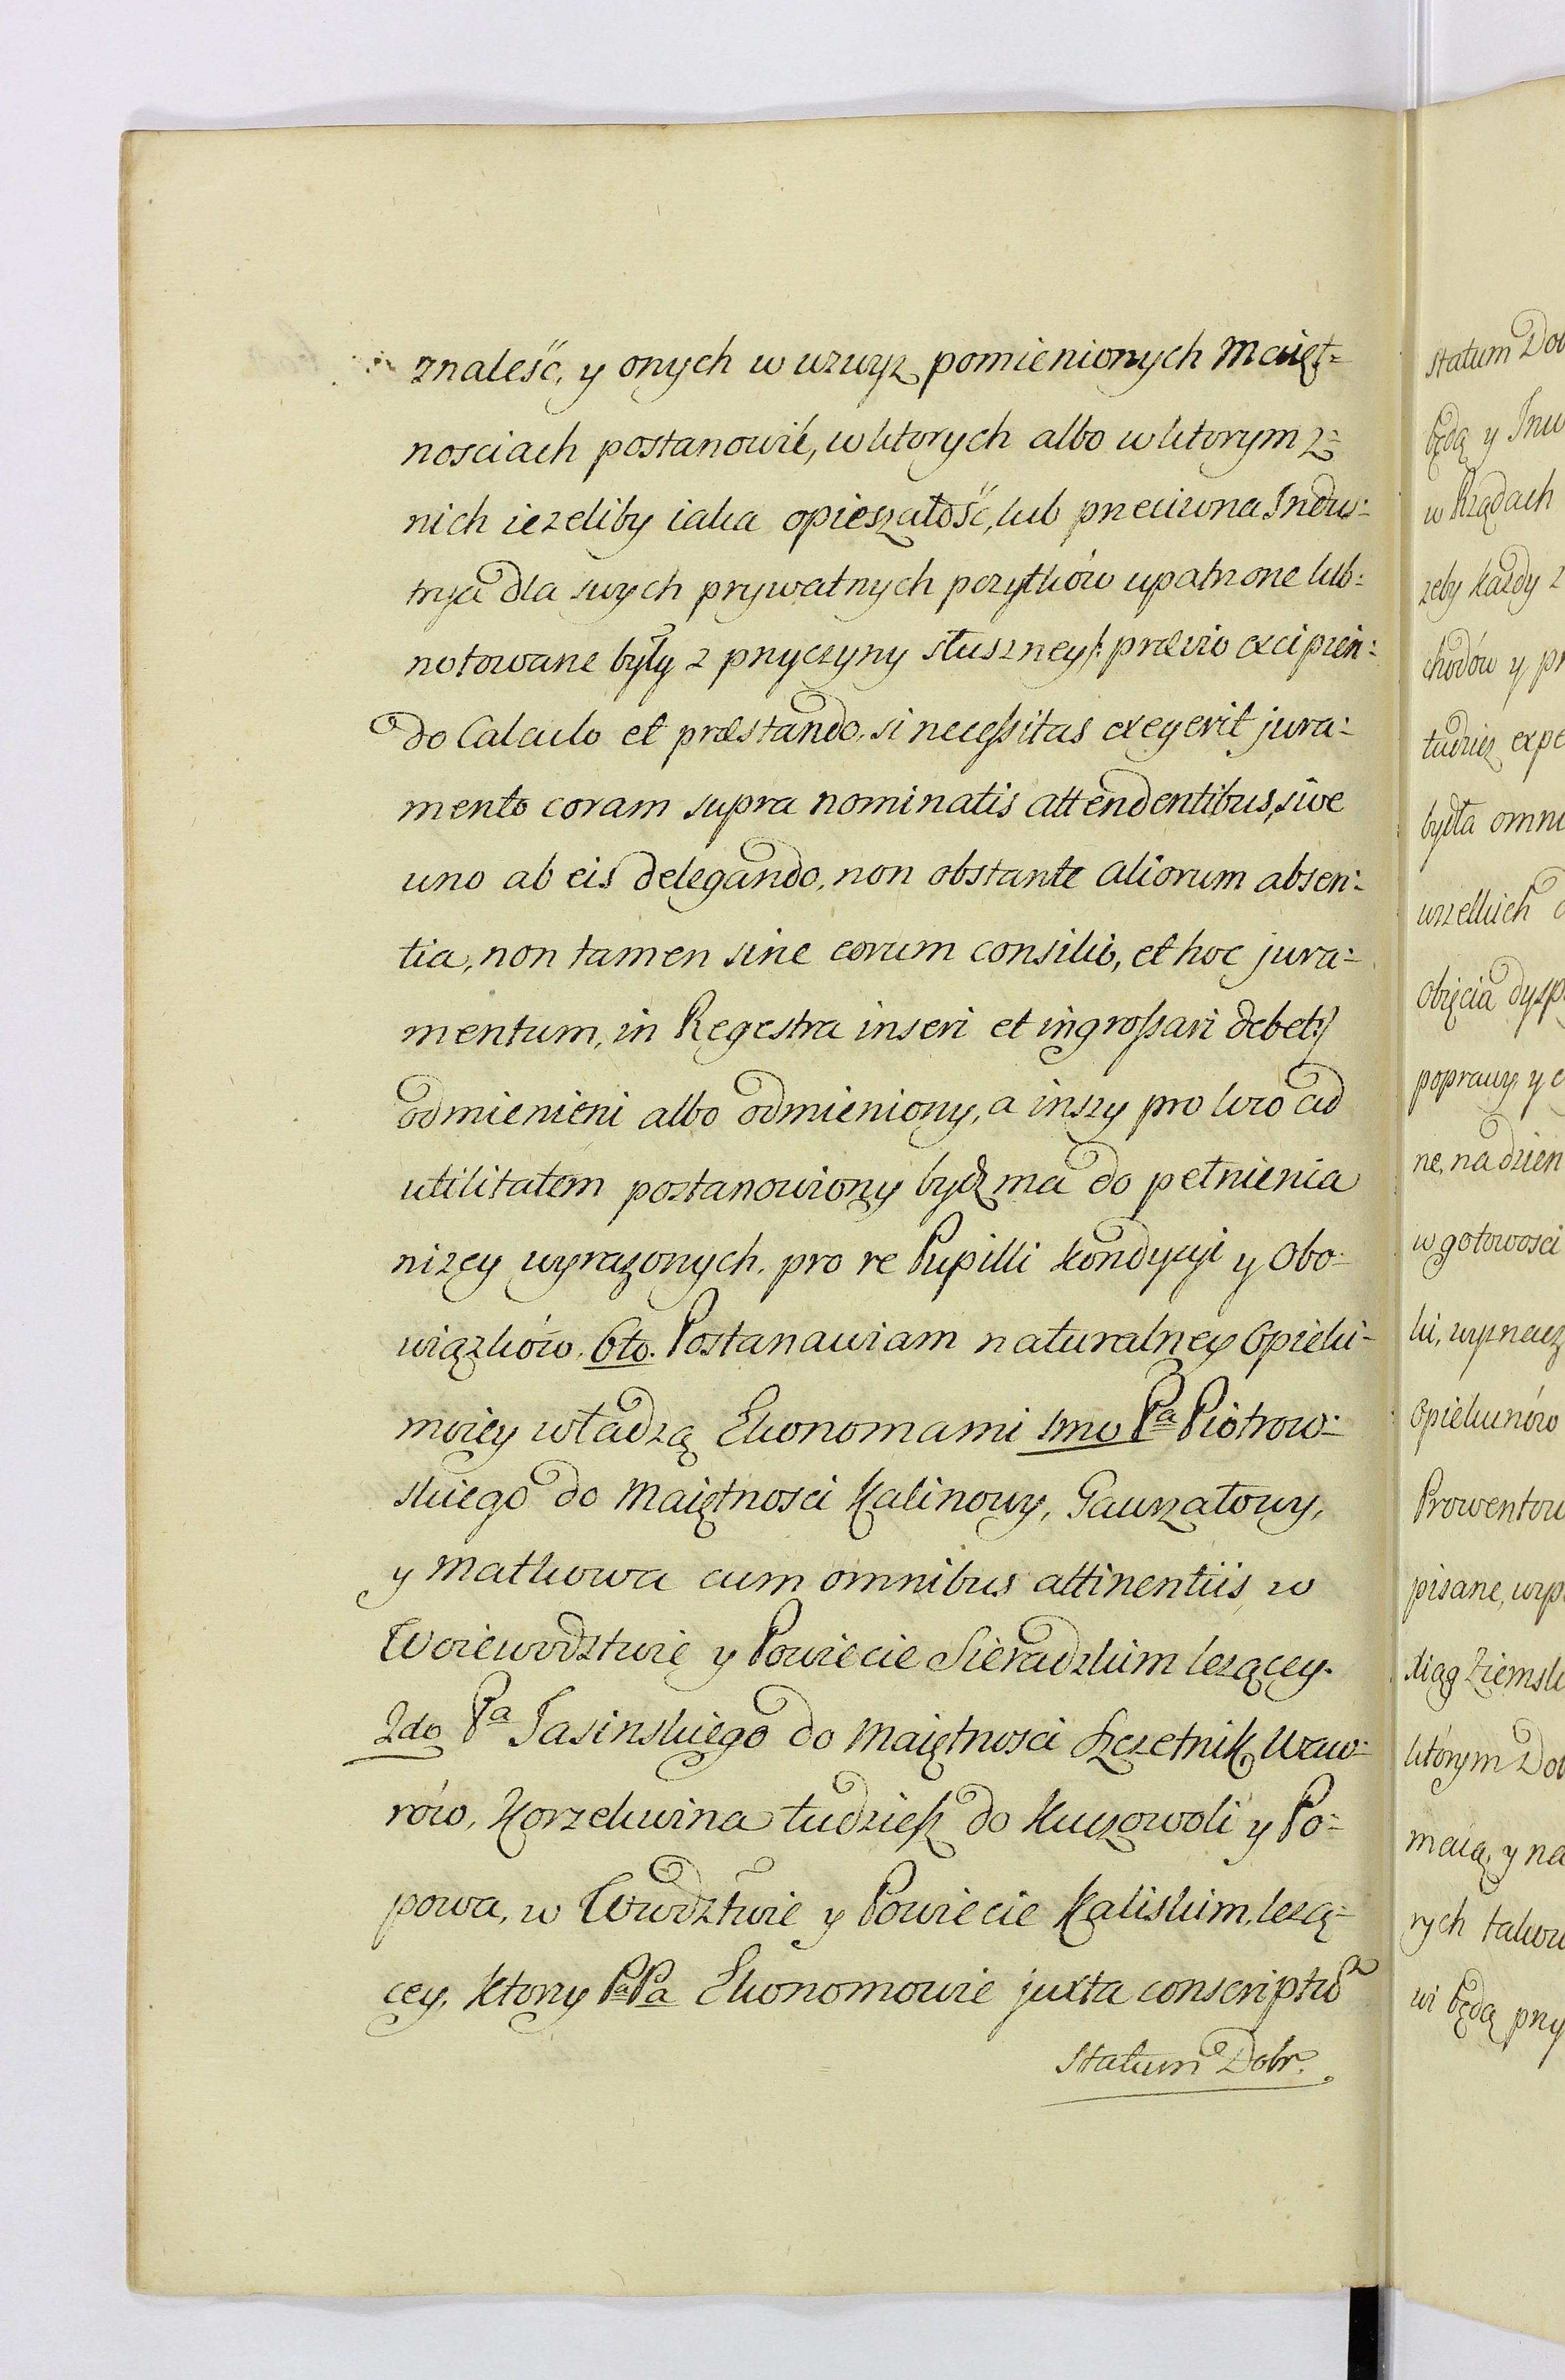 znaleść, y onych w wzwyz pomienionych Maięt=
nosciach postanowić, w ktorych albo w ktorym z=
nich iezeliby iaka opieszałość, lub przeciwna Indus=
trya dla swych prywatnych pozytków upatrzone lub=
notowane były z przyczyny słuszney /: prævio excipien=
do Calculo et præstando, si necessitas exegerit jura=
mento coram supra nominatis attendentibus, sive
uno ab eis delegando, non obstante aliorum absen=
tia, non tamen sine eorum consilio, et hoc jura=
mentum, in Regestra inseri et ingrossari debet :/
odmienieni albo odmieniony, a inszy pro loco ad
utilitatem postanowiony bydz ma do pełnienia
nizey wyrazonych, pro re Pupilli kondycyi y Obo=
wiązków. 6to. Postanawiam naturalney Opieki=
moiey władzą Ekonomami 1mo Pa Piotrow=
skiego do Maiętnosci Kalinowy, Gawrzałowy,
y Małkowa cum omnibus attinentiis, w
Woiewodztwie y Powiecie Sieradzkim lezącey.
2do Pa Jasinskiego do Maiętnosci Szczetnik, Waw=
rów, Korzekwina tudziesz do Kuczowoli y Po=
powa, w Wwdztwie y Powiecie Kaliskim, lezą=
cey, ktorzy PaPa Ekonomowie juxta conscriptũ
Statum Dobr.
statum Dob
będą y Inw
w Rządach
zeby kazdy z
chodów y pr
tudziez expe
bydła omni
wszelkich d
Obięcia dysp
poprawy, y c
ne, na dzien
w gotowosci
ki, wyznacz
Opiekunów
Prowentow
pisane, wyp
xiąg Ziemsk
którym Dob
maią, y na
rych takow
wi będą przy